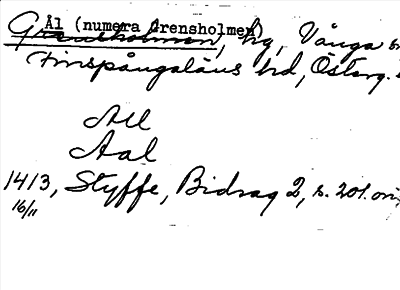 Ål (numera Grensholmen)
Grensholmen, hg, Vånga
Finspångaläns hd, Österg.
All
Aal
1413, Styffe, Bidrag 2, s. 201. ori
16/11